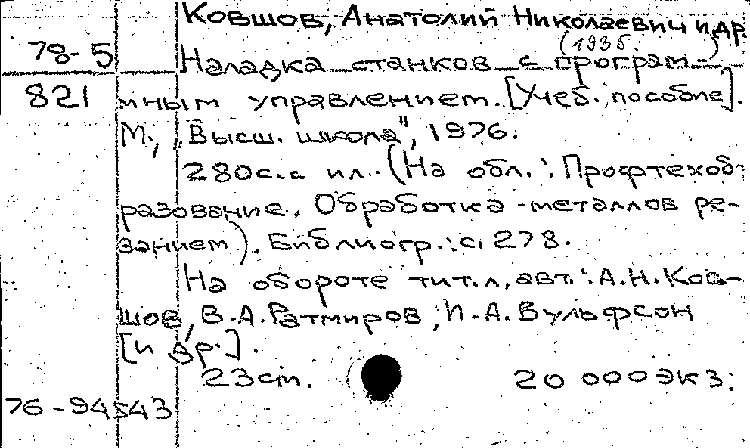 Ковшов, Анатолий Николаевич и др.
(1935. )
78-5 Наладка станков с програм-
821 мным управлением. [Учеб. пособие].
М., „Высш. школа", 1976.
280с.с ил. (На обл.: Профтехоб-
разование. Обработка металлов ре-
занием). Библиогр.: с. 278.
На обороте тит.л. авт.: А.Н. Ков-
шов, В.А. Ратмиров, И.А. Вульфсон
[и др.].
23см. 20 000 экз.
76-94543